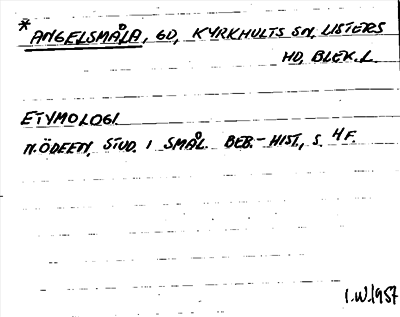 * ANGELSMÅLA, GD, KYRKHULTS SN, LISTERS
HD, BLEK. L.
ETYMOLOGI.
N. ÖDEEN, STUD. I SMÅL. BEB.-HIST., S. 4 F.
I.W. 1957